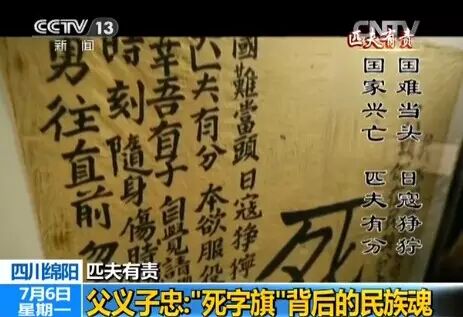 CCTV 13
新闻
CNTV
匹夫有责
国难当头 日寇狰狞
国家兴亡 匹夫有分
國難當頭日寇猙獰
匹夫有分本欲服役
幸吾有子自覓請
時刻隨身傷時
勇往直前勿
死
四川绵阳
匹夫有责
7月6日
星期一
父义子忠:"死字旗"背后的民族魂